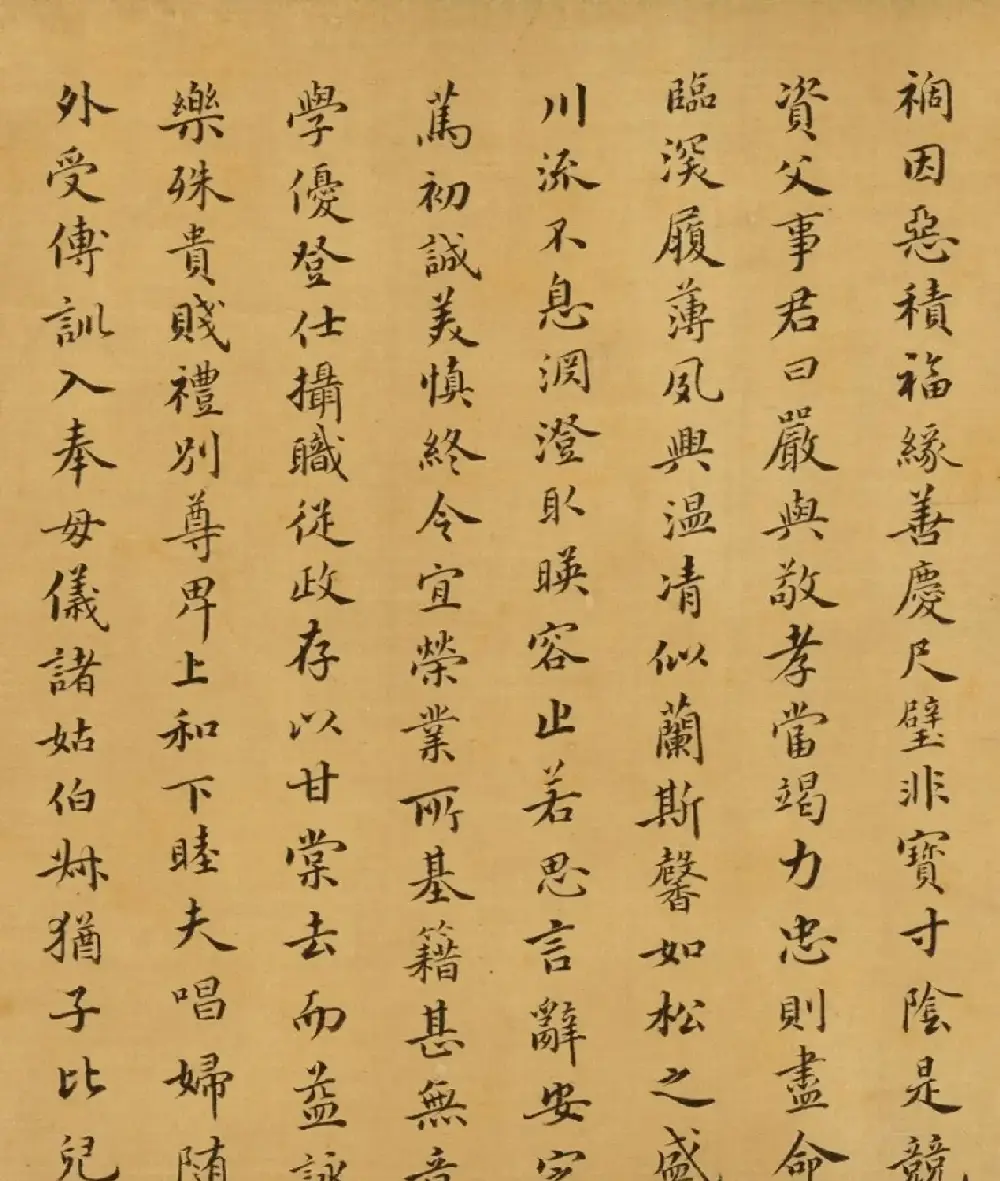 禍因惡積福緣善慶尺璧非寶寸陰是競
資父事君曰嚴與敬孝當竭力忠則盡命
臨深履薄夙興温凊似蘭斯馨如松之盛
川流不息淵澄取暎容止若思言辭安定
篤初誠美慎終令宜榮業所基籍甚無竟
學優登仕攝職從政存以甘棠去而益詠
樂殊貴賤禮別尊卑上和下睦夫唱婦随
外受傅訓入奉母儀諸姑伯叔猶子比兒